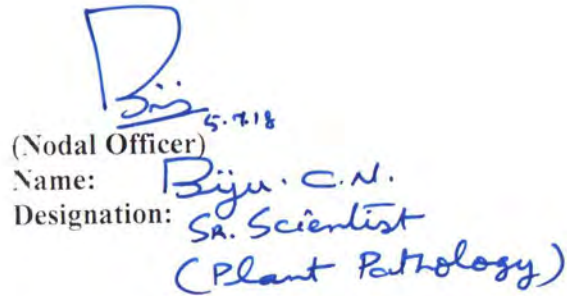 Biju
5.7.18
(Nodal Officer)
Name: Biju. C.N.
Designation: SR. Scientist
(Plant Pathology)